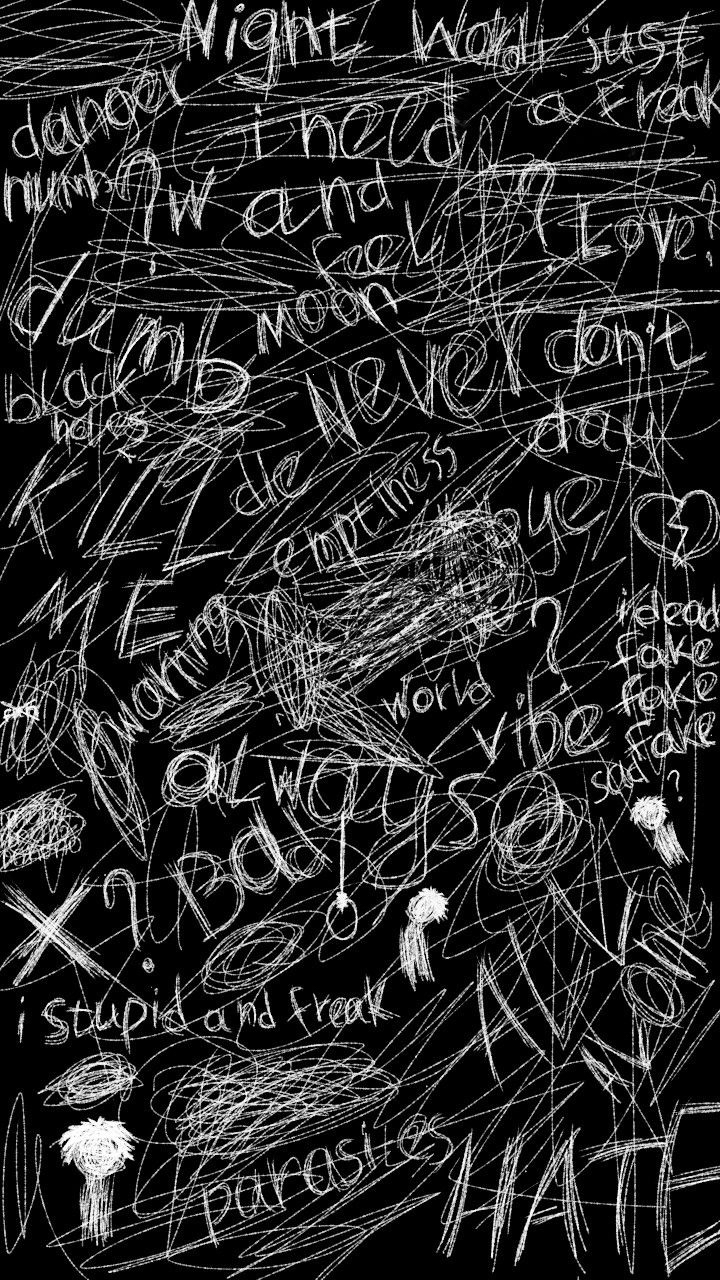 Night World just
danger i need a freak
numb ? w and ? Love?
feel
dumb moon
black holes Never don't
day
KILL die emptiness
ye
ME warning ? i dead
fake
fake
world fake
vibe fake
always sad ?
X ? Bad
Alone
i stupid and freak
parasites HATE